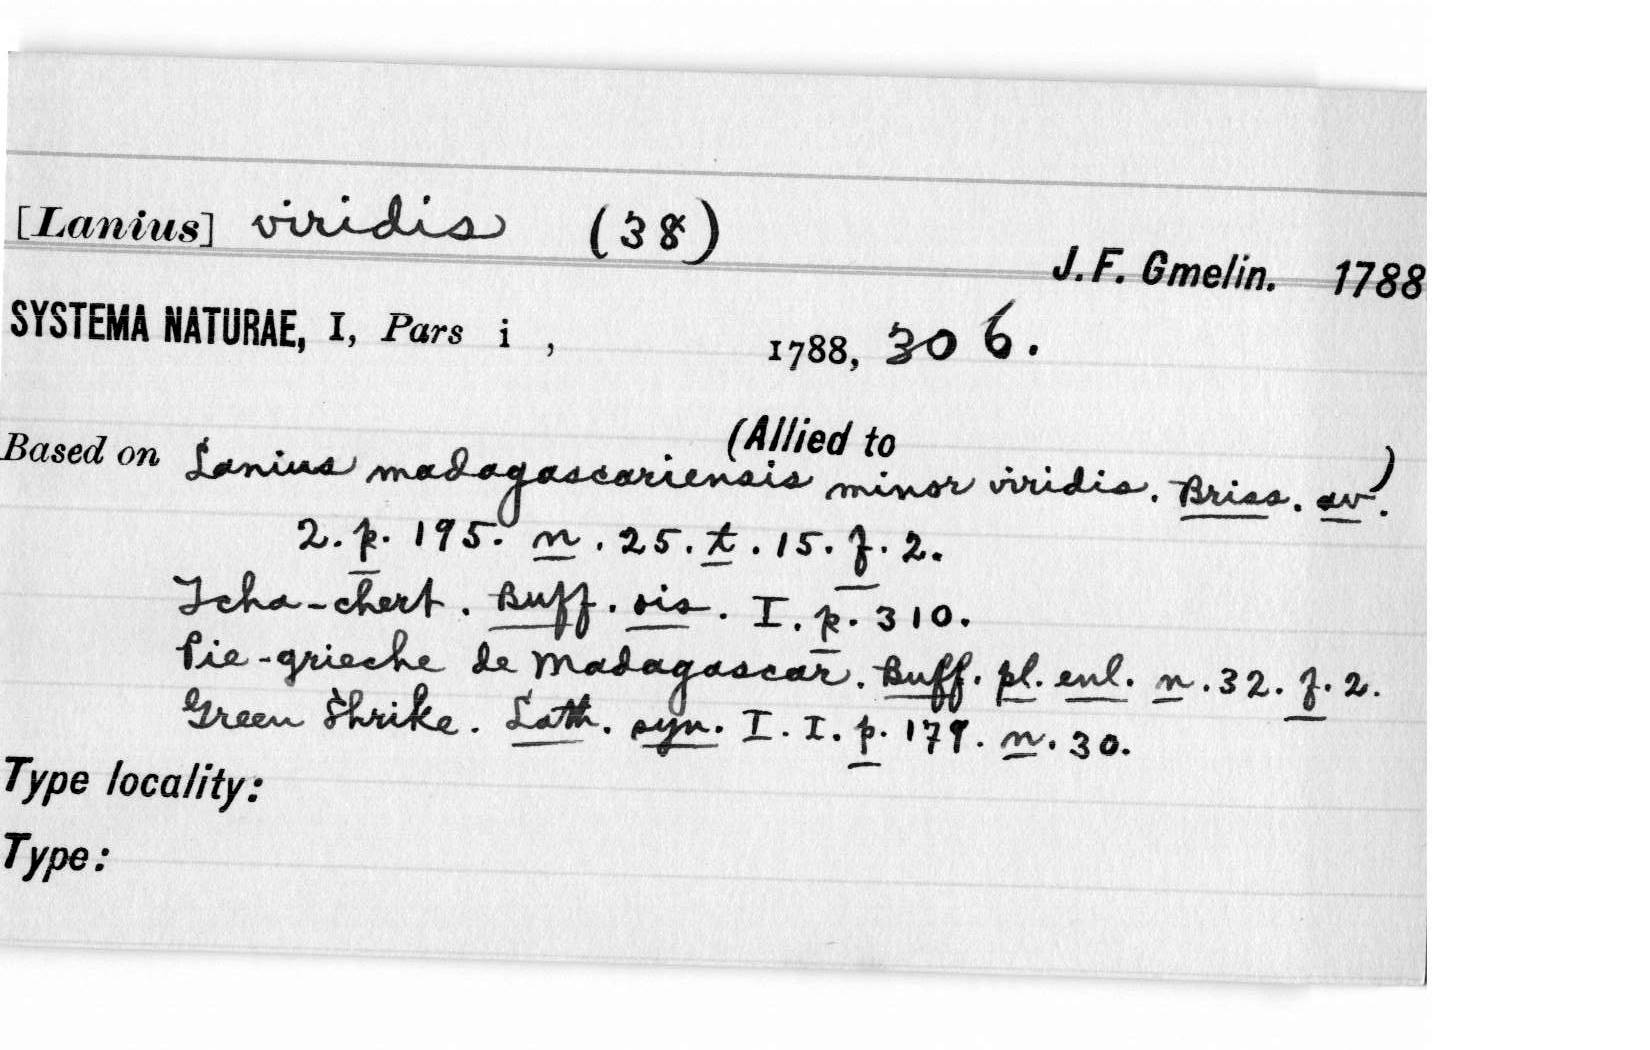 [Lanius] viridis (38)
J. F. Gmelin. 1788
SYSTEMA NATURAE, I, Pars i , 1788, 306.
(Allied to )
Based on Lanius madagascariensis minor viridis. Briss. av.
2. p. 195. n. 25. t. 15. f. 2.
Tcha-chert. Buff. ois. I. p. 310.
Pie-grieche de Madagascar. Buff. pl. enl. n. 32. f. 2.
Green Shrike. Lath. syn. I. I. p. 179. n. 30.
Type locality:
Type: